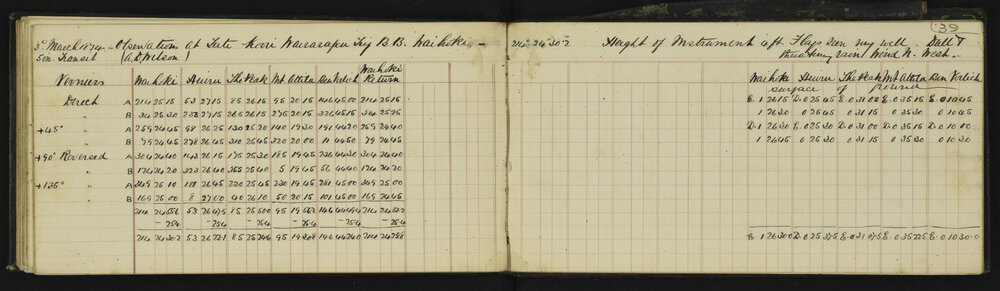 139
3rd March 1874 - Observations at Tute Kooii Wairarapa Trig B.B. Waihoki -
5in. Transit (A.D. Wilson)
Verniers Waihoki The Peak Mt Attila Ben Vorlich Waihoki Return
Direct A 214 25 15 53 27 15 85 26 15 95 20 15 146 45 00 214 25 15
" B 34 25 30 233 27 15 265 26 15 275 20 15 326 45 15 34 25 25
+45° A 259 24 45 98 26 25 130 25 20 140 19 30 191 44 20 259 24 40
" B 79 24 45 278 26 45 310 25 45 320 20 00 11 44 50 79 24 45
+90° Reversed A 304 24 40 143 26 15 175 25 30 185 19 45 236 44 30 304 24 40
" B 124 24 20 323 26 40 355 25 40 5 19 45 56 44 40 124 24 20
+135° " A 349 25 10 188 26 45 220 25 45 230 19 45 281 45 00 349 25 00
B 169 25 00 8 27 00 40 26 10 50 20 15 101 45 00 169 24 45
214 24 55.6 53 26 47.5 85 25 50.0 95 19 56.2 146 44 49.4 214 24 51.2
-25.4 -25.4 -25.4 -25.4
214 24 30.2 53 26 22.1 85 25 24.6 95 19 30.8 146 44 24.0 214 24 25.8
214° 24' 30".2 Height of Instrument 4 ft Flags seen my well. Dull &
threatening rain Wind N. West.
Waihoki The Peak Mt Attila Ben Vorlich
surface of ground
E. 1 26 15 D. 0 25 45 E. 0 31 00 E. 0 35 15 E. 0 10 45
1 26 30 0 26 45 0 31 15 0 35 30 0 10 45
D. 1 26 30 E. 0 25 30 D. 0 31 00 D. 0 35 15 D. 0 10 00
1 26 45 0 25 30 0 31 15 0 35 30 0 10 30
E. 1 26 30.0 D. 0 25 37.5 E. 0 31 07.5 E. 0 35 22.5 E. 0 10 30.0